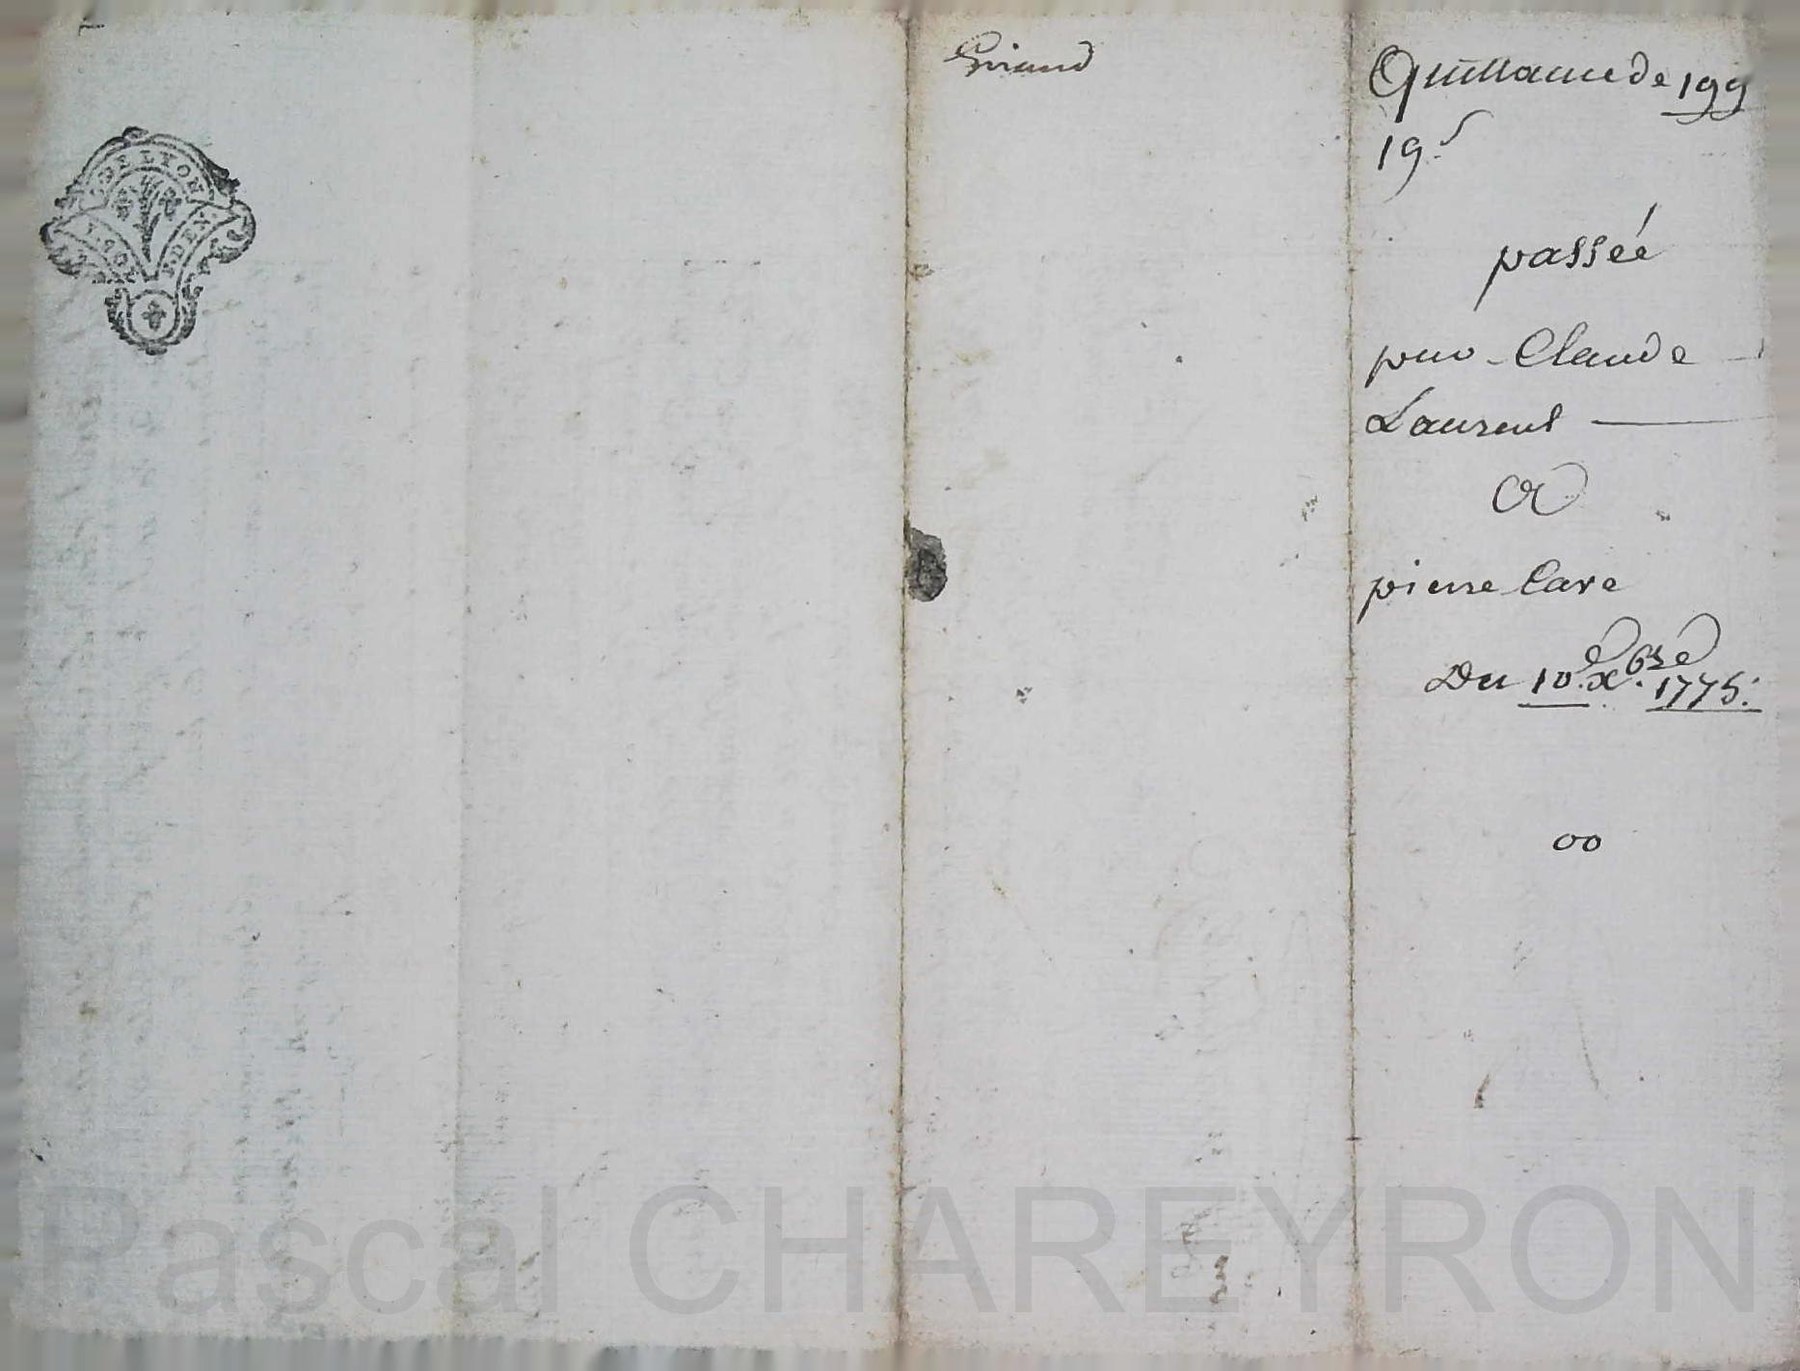 DE LYON
2. DEN.
Giraud
Quittance de 199
19 s
passéé
par Claude
Laurent
A
pierre Cave
Du 10.e x.bre 1775.
oo
Pascal CHAREYRON